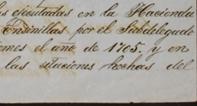 ejecutadas en la Hacienda
Ensinillas por el Subdelegado
el año de 1705, y en
las situaciones hechas del